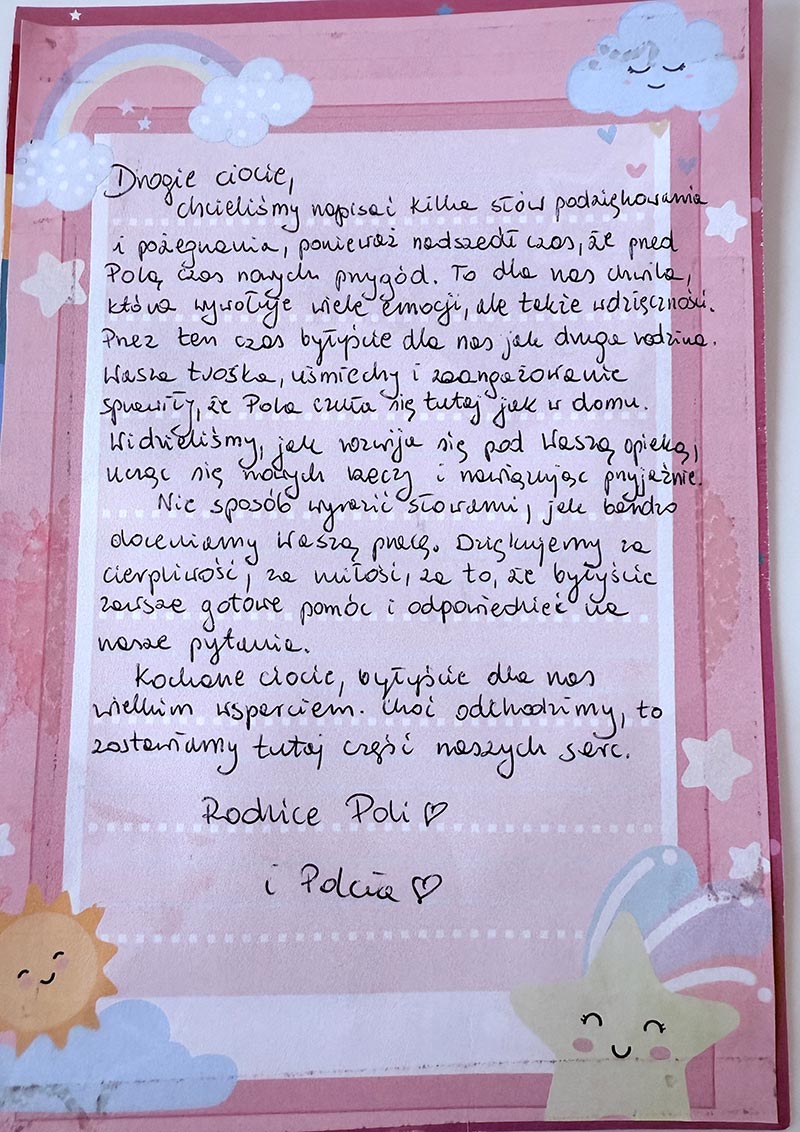 Drogie ciocie,
chcieliśmy napisać kilka słów podziękowania
i pożegnania, ponieważ nadszedł czas, że przed
Polą czas nowych przygód. To dla nas chwila,
która wywołuje wiele emocji, ale także wdzięczności.
Przez ten czas byłyście dla nas jak druga rodzina.
Wasza troska, uśmiechy i zaangażowanie
sprawiły, że Pola czuła się tutaj jak w domu.
Widzieliśmy, jak rozwija się pod Waszą opieką,
ucząc się nowych rzeczy i nawiązując przyjaźnie.
Nie sposób wyrazić słowami, jak bardzo
doceniamy Waszą pracę. Dziękujemy za
cierpliwość, za miłość, za to, że byłyście
zawsze gotowe pomóc i odpowiedzieć na
nasze pytania.
Kochane ciocie, byłyście dla nas
wielkim wsparciem. Choć odchodzimy, to
zostawiamy tutaj część naszych serc.
Rodzice Poli ♡
i Polcia ♡